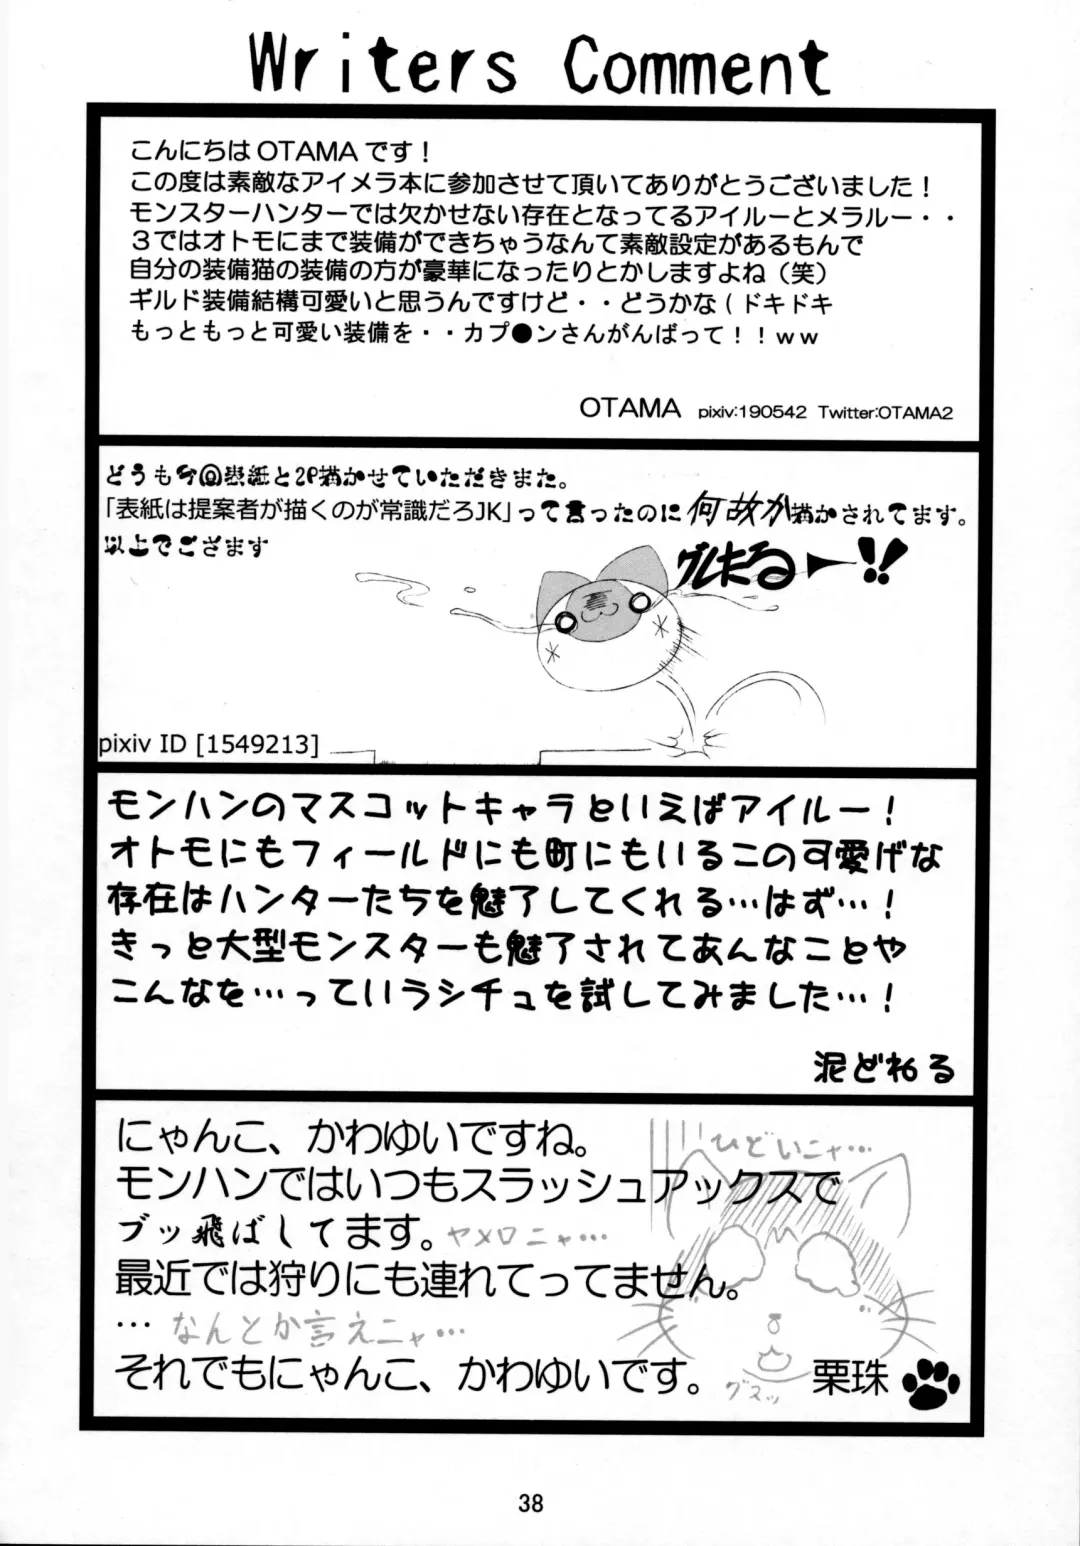 Writers Comment
こんにちは OTAMA です！
この度は素敵なアイメラ本に参加させて頂いてありがとうございました！
モンスターハンターでは欠かせない存在となってるアイルーとメラルー・・
３ではオトモにまで装備ができちゃうなんて素敵設定があるもんで
自分の装備猫の装備の方が豪華になったりとかしますよね（笑）
ギルド装備結構可愛いと思うんですけど・・どうかな（ドキドキ
もっともっと可愛い装備を・・カプ●ンさんがんばって！！ｗｗ
OTAMA pixiv:190542 Twitter:OTAMA2
どうも今回表紙と2P描かせていただきまた。
「表紙は提案者が描くのが常識だろJK」って言ったのに何故か描かされてます。
以上でござます
グレたるー!!
pixiv ID [1549213]
モンハンのマスコットキャラといえばアイルー！
オトモにもフィールドにも町にもいるこの可愛げな
存在はハンターたちを魅了してくれる…はず…！
きっと大型モンスターも魅了されてあんなことや
こんなを…っていうシチュを試してみました…！
泥どねる
にゃんこ、かわゆいですね。
ひどいニャ…
モンハンではいつもスラッシュアックスで
ブッ飛ばしてます。ヤメロニャ…
最近では狩りにも連れてってません。
… なんとか言えニャ…
それでもにゃんこ、かわゆいです。
グスッ
栗珠
38